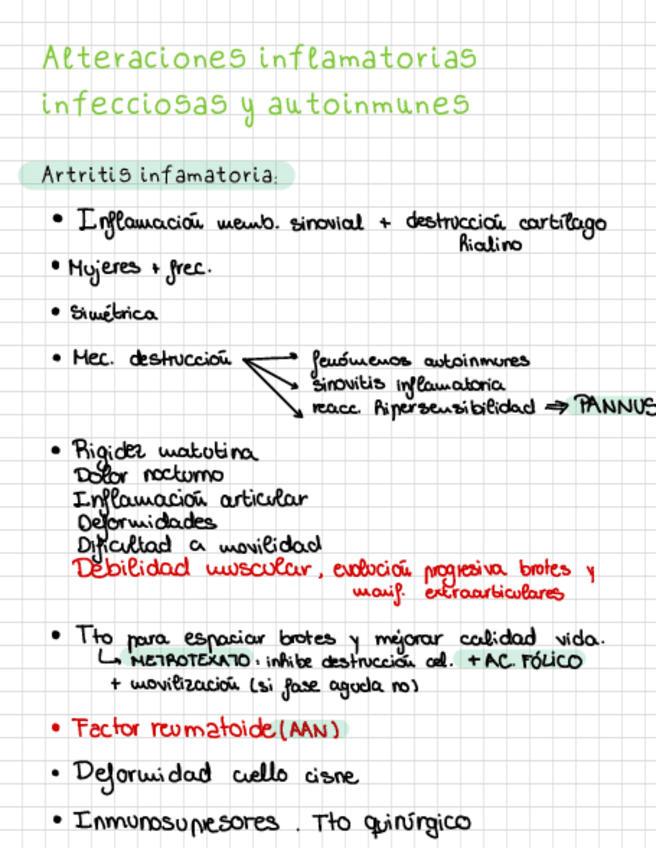 Alteraciones inflamatorias
infecciosas y autoinmunes
Artritis infamatoria:
• Inflamación memb. sinovial + destrucción cartílago
hialino
• Mujeres + frec.
• Simétrica
• Mec. destrucción → fenómenos autoinmunes
→ sinovitis inflamatoria
→ reacc. hipersensibilidad ⇒ PANNUS
• Rigidez matutina
Dolor nocturno
Inflamación articular
Deformidades
Dificultad a movilidad
Debilidad muscular, evolución progresiva brotes y
manif. extraarticulares
• Tto para espaciar brotes y mejorar calidad vida.
↳ METROTEXATO: inhibe destrucción cel. + AC. FÓLICO
+ movilización (si fase aguda no)
• Factor reumatoide (AAN)
• Deformidad cuello cisne
• Inmunosupresores. Tto quirúrgico